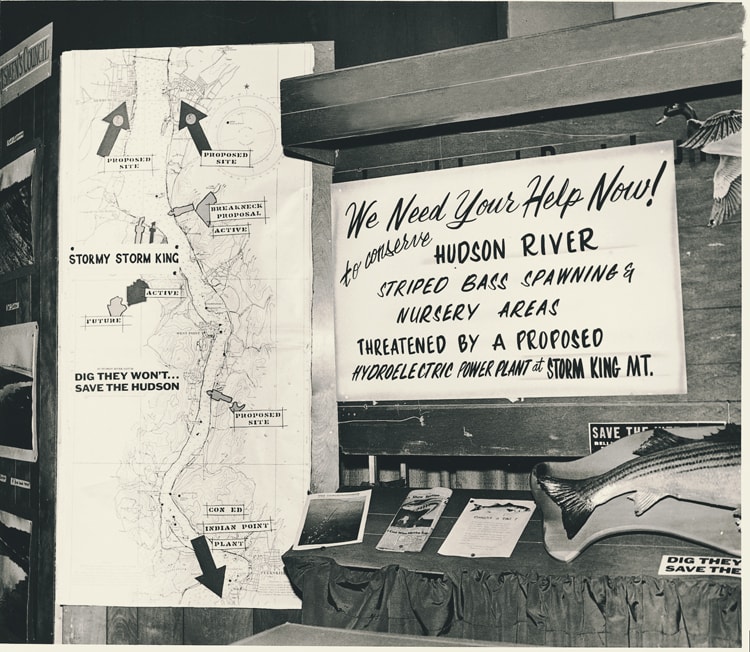 PROPOSED
SITE
PROPOSED
SITE
BREAKNECK
PROPOSAL
ACTIVE
STORMY STORM KING
ACTIVE
FUTURE
DIG THEY WON'T...
SAVE THE HUDSON
PROPOSED
SITE
CON ED
INDIAN POINT
PLANT
We Need Your Help Now!
to conserve HUDSON RIVER
STRIPED BASS SPAWNING &
NURSERY AREAS
THREATENED BY A PROPOSED
HYDROELECTRIC POWER PLANT at STORM KING MT.
SAVE THE
DIG THEY
SAVE THE